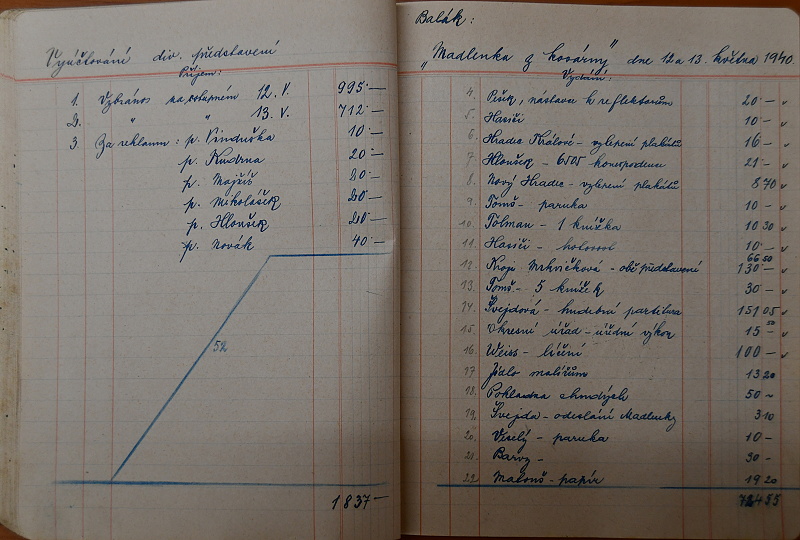 Vyúčtování div. představení
Příjem:
1. Vybráno na vstupném 12. V. 995·—
2. " " 13. V. 712·—
3. Za reklamu: p. Vinduška 10·—
p. Kudrna 20·—
p. Majžíš 20·—
p. Mikolášek 20·—
p. Hloušek 20·—
p. Novák 40·—
52
1837—
Balák:
„Madlenka z kovárny" dne 12 a 13. května 1940.
Vydání:
4. nástavce k reflektorům 20·—
5. Hasiči 10·—
6. Hradec Králové - vylepení plakátů 16—
7. Hloušek - korespondence 21·—
8. Nový Hradec - vylepení plakátů 8 70
9. Tomš - paruka 10—
10. Tolman - 1 knížka 10 30
11. Hasiči - 10·—
66 50
12. Kroje Mrhvičková - obě představení 130·—
13. Tomš - 5 knížek 30—
14. Švejdová - hudební partitura 151 05
15. Okresní úřad - úřední výkon 15 50
16. Weiss - líčení 100—
17 Jídlo malířům 13 20
18. Pokladna chudých 50—
19. Švejda - odeslání Madlenky 3 10
20. Veselý - paruka 10—
21. Barvy - 30—
22. Matouš - papír 19 20
724 55